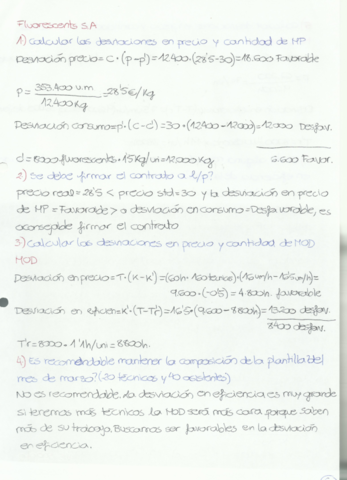 Fluorescents S.A
1) Calcular las desviaciones en precio y cantidad de MP
Desviación precio = C · (p-p') = 12400 · (28'5-30) = 18.600 Favorable
P = 353.400 u.m / 12400 kg = 28'5 €/kg
Desviación consumo = p' · (C-C') = 30 · (12400-12000) = 12000 Desfav.
C' = 8000 fluorescents · 1'5 kg/un = 12.000 kg 6.600 Favor.
2) Se debe firmar el contrato a l/p?
precio real = 28'5 < precio std = 30 y la desviación en precio
de MP = Favorable > a desviación en consumo = Desfavorable, es
aconsejable firmar el contrato
3) Calcular las desviaciones en precio y cantidad de MOD
MOD
Desviación en precio = T · (K-K') = (60h · 160) · (16 um/h - 16'5 um/h) =
9.600 · (-0'5) = 4.800 favorable
Desviación en eficien = K' · (T-T') = 16'5 · (9.600-8800h) = 13200 desfav.
8400 desfav.
Tr = 8000 · 1'1h/un = 8800h.
4) Es recomendable mantener la composición de la plantilla del
mes de marzo? (20 técnicos y 40 asistentes)
No es recomendable, la desviación en eficiencia es muy grande
si tenemos más técnicos la MOD será más cara porque saben
más de su trabajo. Buscamos ser favorables en la desviación
en eficiencia.